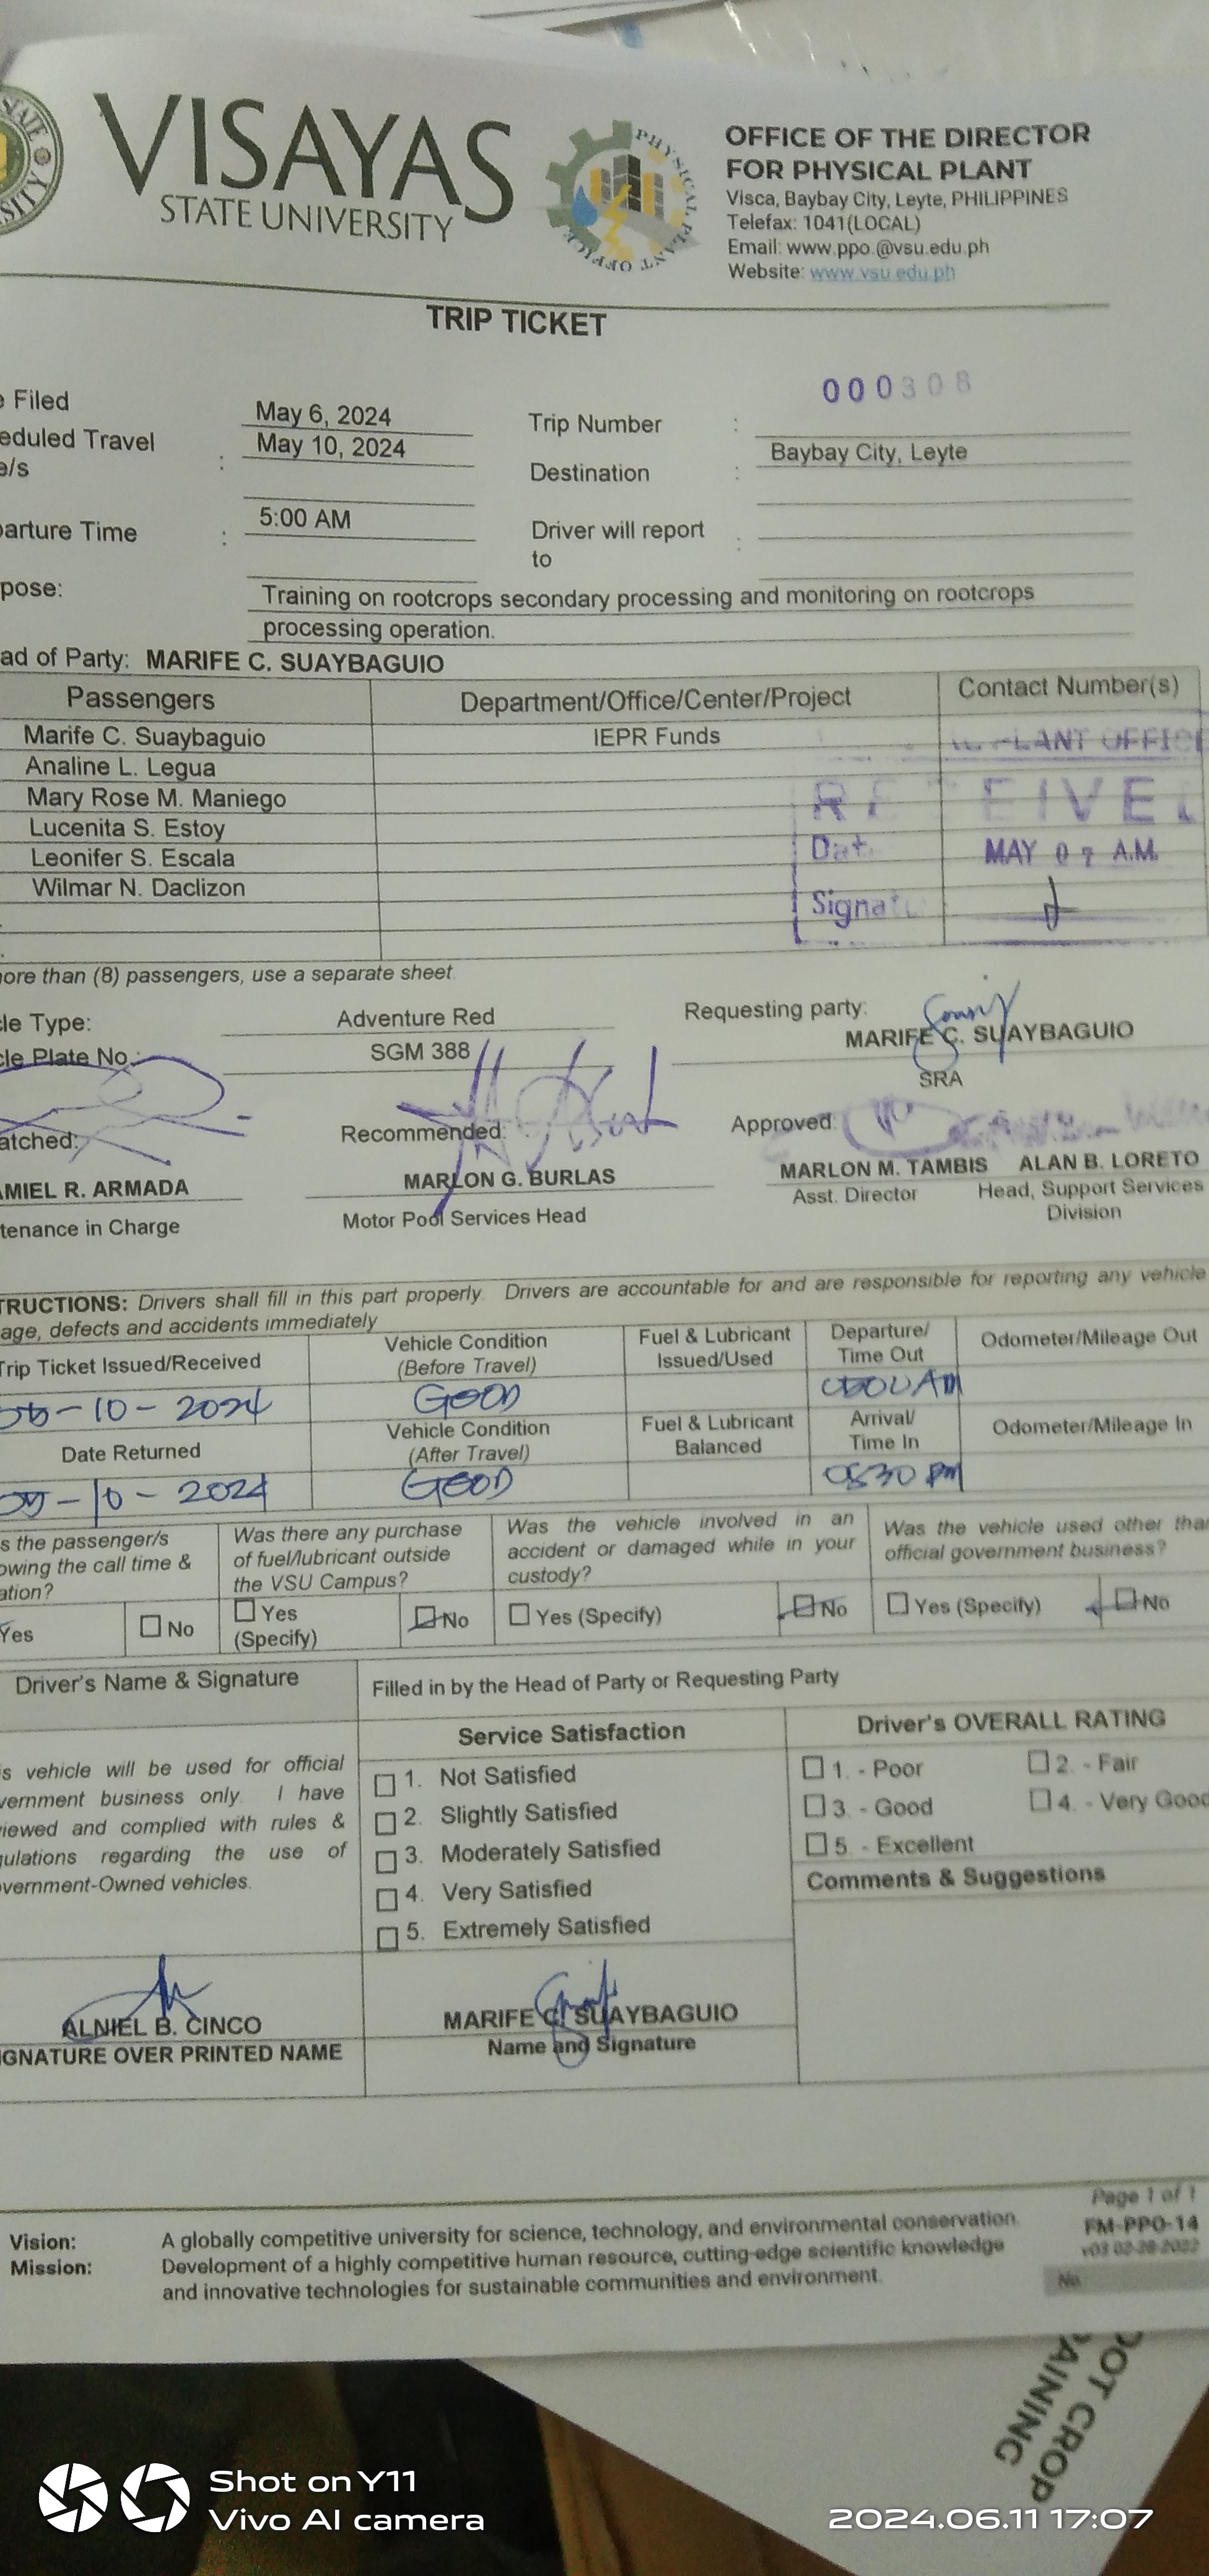 VISAYAS
STATE UNIVERSITY
PHYSICAL PLANT OFFICE
OFFICE OF THE DIRECTOR
FOR PHYSICAL PLANT
Visca, Baybay City, Leyte, PHILIPPINES
Telefax: 1041(LOCAL)
Email: www.ppo.@vsu.edu.ph
Website: www.vsu.edu.ph
TRIP TICKET
000308
Filed May 6, 2024 Trip Number :
eduled Travel : May 10, 2024 Destination : Baybay City, Leyte
e/s
arture Time : 5:00 AM Driver will report :
to
pose: Training on rootcrops secondary processing and monitoring on rootcrops
processing operation.
ad of Party: MARIFE C. SUAYBAGUIO
Passengers Department/Office/Center/Project Contact Number(s)
Marife C. Suaybaguio IEPR Funds PLANT OFFIC
Analine L. Legua
Mary Rose M. Maniego RE EIVE
Lucenita S. Estoy
Leonifer S. Escala Dat MAY 07 A.M.
Wilmar N. Daclizon
Signat
ore than (8) passengers, use a separate sheet
le Type: Adventure Red Requesting party:
cle Plate No.: SGM 388 MARIFE C. SUAYBAGUIO
SRA
atched: Recommended: Approved:
AMIEL R. ARMADA MARLON G. BURLAS MARLON M. TAMBIS ALAN B. LORETO
tenance in Charge Motor Pool Services Head Asst. Director Head, Support Services
Division
TRUCTIONS: Drivers shall fill in this part properly. Drivers are accountable for and are responsible for reporting any vehicle
age, defects and accidents immediately
Trip Ticket Issued/Received Vehicle Condition (Before Travel) Fuel & Lubricant Issued/Used Departure/ Time Out Odometer/Mileage Out
05-10-2024 GOOD
Date Returned Vehicle Condition (After Travel) Fuel & Lubricant Balanced Arrival/ Time In Odometer/Mileage In
05-10-2024 GOOD 0530 PM
s the passenger/s Was there any purchase Was the vehicle involved in an Was the vehicle used other tha
owing the call time & of fuel/lubricant outside accident or damaged while in your official government business?
ation? the VSU Campus? custody?
Yes No Yes (Specify) No Yes (Specify) No Yes (Specify) No
Driver's Name & Signature Filled in by the Head of Party or Requesting Party
Service Satisfaction Driver's OVERALL RATING
s vehicle will be used for official 1. Not Satisfied 1. - Poor 2. - Fair
vernment business only. I have 2. Slightly Satisfied 3. - Good 4. - Very Good
iewed and complied with rules & 3. Moderately Satisfied 5. - Excellent
gulations regarding the use of 4. Very Satisfied Comments & Suggestions
vernment-Owned vehicles. 5. Extremely Satisfied
ALNIEL B. CINCO MARIFE C. SUAYBAGUIO
IGNATURE OVER PRINTED NAME Name and Signature
Page 1 of 1
Vision: A globally competitive university for science, technology, and environmental conservation. FM-PPO-14
Mission: Development of a highly competitive human resource, cutting-edge scientific knowledge v03 02-28-2022
and innovative technologies for sustainable communities and environment. No.
OOT CROP
AINING
Shot on Y11
Vivo AI camera
2024.06.11 17:07